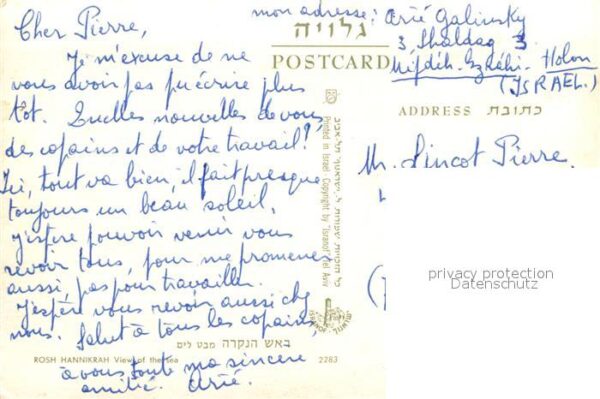 Cher Pierre,
Je m'excuse de ne
vous avoir pas pu écrire plus
tot. Quelles nouvelles de vous,
des copains et de votre travail?
Ici, tout va bien, il fait presque
toujours un beau soleil.
J'espère pouvoir venir vous
revoir tous, pour me promener
aussi, pas pour travailler.
J'espère vous revoir aussi chez
nous. Salut à tous les copains,
à vous toute ma sincère
amitié. Arié.
mon adresse: Arié Galinsky
3, Shaldag 3
Mifdeh-Ezrahi- Holon
(ISRAEL.)
גלויה
POSTCARD
ADDRESS כתובת
M. Lincot Pierre.
Printed in Israel Copyright by "Isranof" Tel Aviv
privacy protection
Datenschutz
בראש הנקרה מבט לים
ROSH HANNIKRAH View of the sea 2283